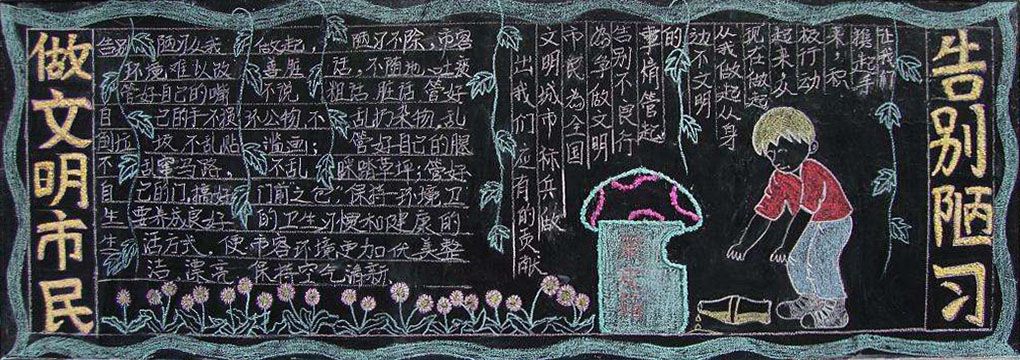 做文明市民
告别陋习从我做起,陋习不除,市容
环境难以改善脏话,不随地吐痰
管好自己的嘴 不说粗话脏话 管好
自己的手不损坏公物,不乱扔杂物,乱
倒垃圾,不乱贴滥画;管好自己的腿
不乱窜马路,不乱踩踏草坪;管好
自己的门,搞好门前之包"保持环境卫
生,要养成良好的卫生习惯和健康的
生活方式,使市容环境更加优美整
洁、漂亮,保持空气清新.
告别陋习
让我们
携起手
来,积
极行动
起来么
现在做起
从我做起从身
边不文明
的
事情管起
告别不良行
為争做文明
市民為全国
文明城市标兵做
出我们应有的贡献